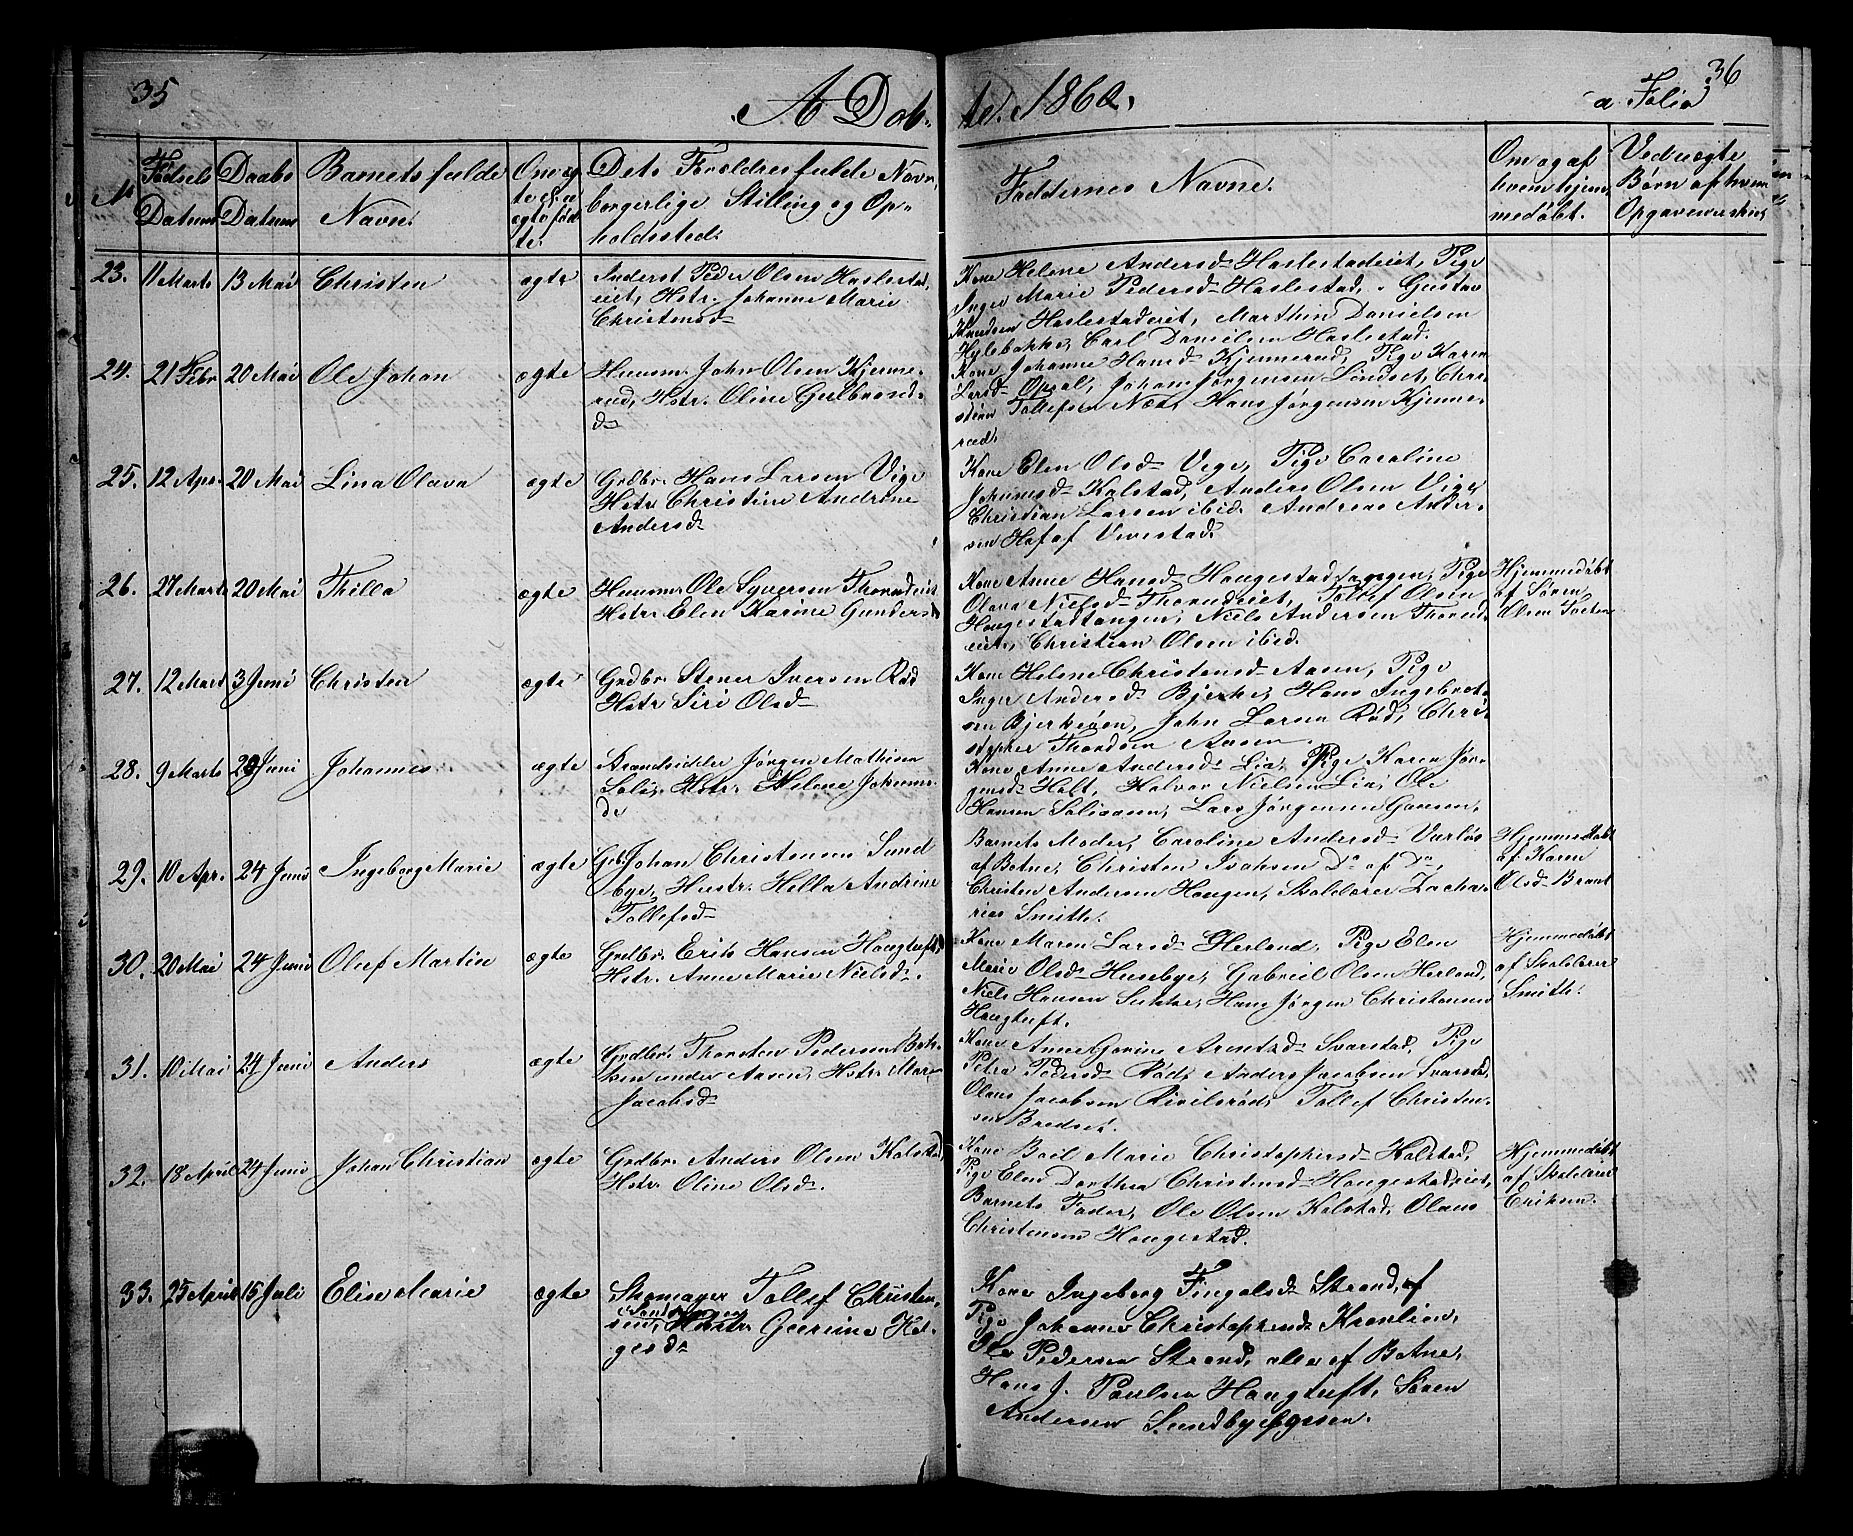 35
A Døb-
te. 1860.
a. Folio
36
No
Fødsels
Datum
Daabs
Datum
Barnets fulde
Navn.
Om æg-
te el. u-
ægte fød-
te.
Dets Forældres fulde Navn,
borgerlige Stilling og Op-
holdssted.
Faddernes Navne.
Om og af
hvem hjem-
medøbt.
Ved uægte
Børn af hvem
Opgaven er skeet
23. 11 Marts 13 Mai Christen ægte
Inderst Peder Olsen Haslestad-
eiet, Hstr. Johanne Marie
Christensd
Kone Helene Andersd Haslestadeiet, Pige
Inger Marie Pedersd Haslestad, Gustav
Knudsen Haslestadeiet, Marthin Danielsen
Hylebakke, Carl Danielsen Haslestad.
24. 21 Febr 20 Mai Ole Johan ægte
Huusm. John Olsen Kjenne-
rud, Hstr. Oline Gulbrandsd-
d
Kone Johanne Hansd Kjennerud, Pige Karen
Larsd Opsal, Johan Jørgensen Lindset, Chri-
stian Tollefsen Næs, Hans Jørgensen Kjenne-
rud.
25. 12 Apr. 20 Mai Lina Olava ægte
Grdbr. Hans Larsen Vige
Hstr. Christine Andrine
Andersd
Kone Elen Olsd Vege, Pige Caroline
Johansd Kalstad, Anders Olsen Vige,
Christian Larsen ibid. Andreas Ander-
sen Hof af Vivestad.
26. 27 Marts 20 Mai Thilla ægte
Huusm. Ole Syversen Thorudeiet
Hstr. Elen Karine Gundersd
Kone Anne Hansd Haugestadtangen, Pige
Olava Nielsd Thorudeiet, Tollef Olsen
Haugestadtangen, Niels Andersen Thorud-
eiet, Christian Olsen ibid.
Hjemmedøbt
af Søren
Olsen
27. 12 Marts 3 Juni Christen ægte
Grdbr. Stener Iversen Rød
Hstr. Siri Olsd
Kone Helene Christensd Aasen, Pige
Inger Andersd Bjerke, Hans Ingebret-
sen Bjerkeøen, John Larsen Rød, Chri-
stopher Thordsen Aasen.
28. 9 Marts 20 Juni Johannes ægte
Strandsidder Jørgen Mathisen
Solie, Hstr. Helene Johanne-
ds
Kone Anne Andersd Lia, Pige Karen Jør-
gensd Holt, Halvor Nielsen Lia, Ole
Hansen Soliaasen, Lars Jørgensen Gaasen.
29. 10 Apr. 24 Juni Ingeborg Marie ægte
Grb. Johan Christensen Sund-
bye, Hustr. Hella Andrine
Tollefsd
Barnets Moder, Caroline Andersd Varløs
af Botne, Christen Isaksen Do af Do,
Christen Andersen Haugen, Skolelærer Zacha-
rias Smith.
Hjemmedøbt
af Karen
Olsd Braat
30. 20 Mai 24 Juni Oluf Martin ægte
Grdbr. Erik Hansen Haugtuft
Hstr. Anne Marie Nielsd.
Kone Maren Larsd Herland, Pige Elen
Marie Olsd Husebye, Gabriel Olsen Herland,
Niels Hansen Sukke, Hans Jørgen Christensen
Haugtuft.
Hjemmedøbt
af Skolelærer
Smith.
31. 10 Mai 24 Juni Anders ægte
Grdbr. Thorsten Pedersen Bak-
ken under Aasen, Hstr. Maren
Jacobsd
Kone Anne Gorine Arentsd Svarstad, Pige
Petra Pedersd Rød, Anders Jacobsen Svarstad,
Olaus Jacobsen Rivelsrød, Tollef Christen-
sen Bredset.
32. 18 April 24 Juni Johan Christian ægte
Grdbr. Anders Olsen Kalstad,
Hstr. Oline Olsd.
Kone Boel Marie Christophersd Kalstad,
Pige Elen Dorthea Christensd Haugestadeiet,
Barnets Fader, Ole Olsen Kalstad, Olaus
Christensen Haugestad.
Hjemmedøbt
af Skolelærer
Eriksen.
33. 25 April 15 Juli Elise Marie ægte
Skomager Tollef Christen-
sen, Hustr. Gurine Hel-
gesd
Kone Ingeborg Fingalsd Strand, af
Pige Johanne Christophersd Kronlien,
Ole Pedersen Strand, alle af Botne,
Hans J. Paulsen Haugtuft, Søren
Andersen Sundbyeøgaren.